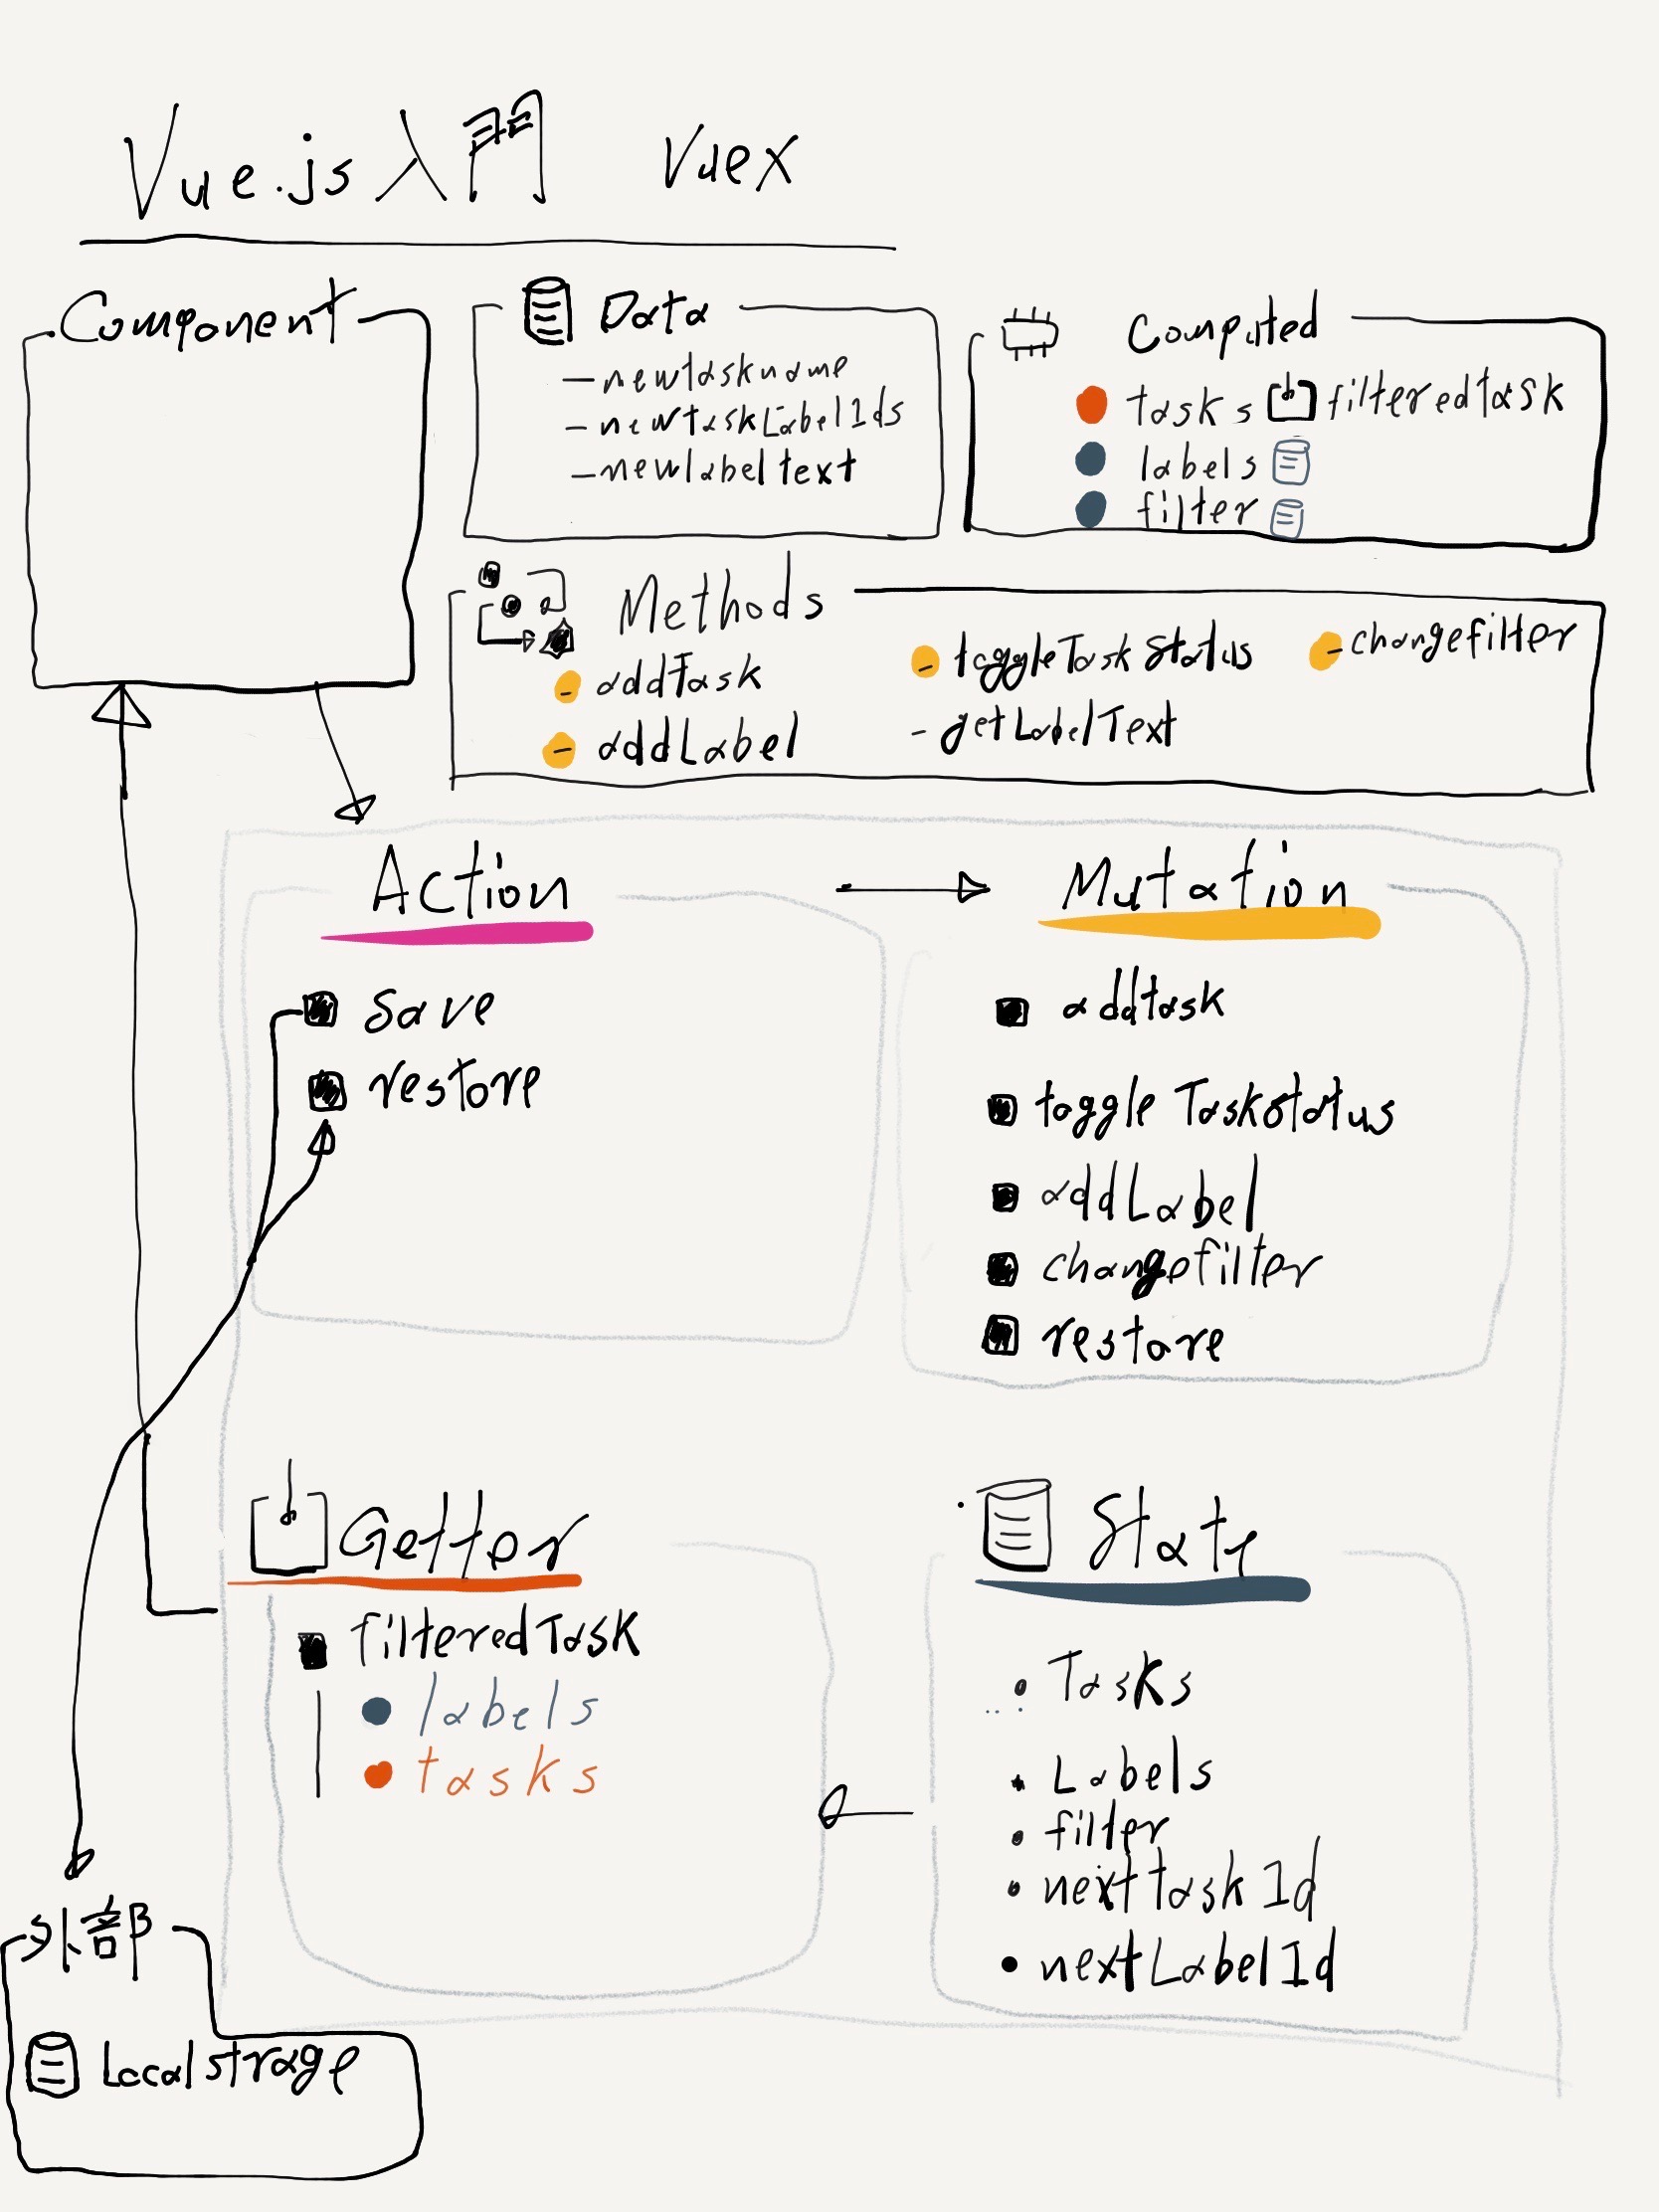 Vue.js入門 Vuex
Component
Data
- newtaskname
- newtaskLabelIds
- newlabeltext
Computed
tasks filteredtask
labels
filter
Methods
- addTask
- addLabel
- toggleTaskStatus
- getLabelText
- changefilter
Action
save
restore
Mutation
addtask
toggle TaskStatus
addLabel
changefilter
restore
Getter
filteredTask
labels
tasks
State
Tasks
Labels
filter
nexttaskId
nextLabelId
外部
Localstrage